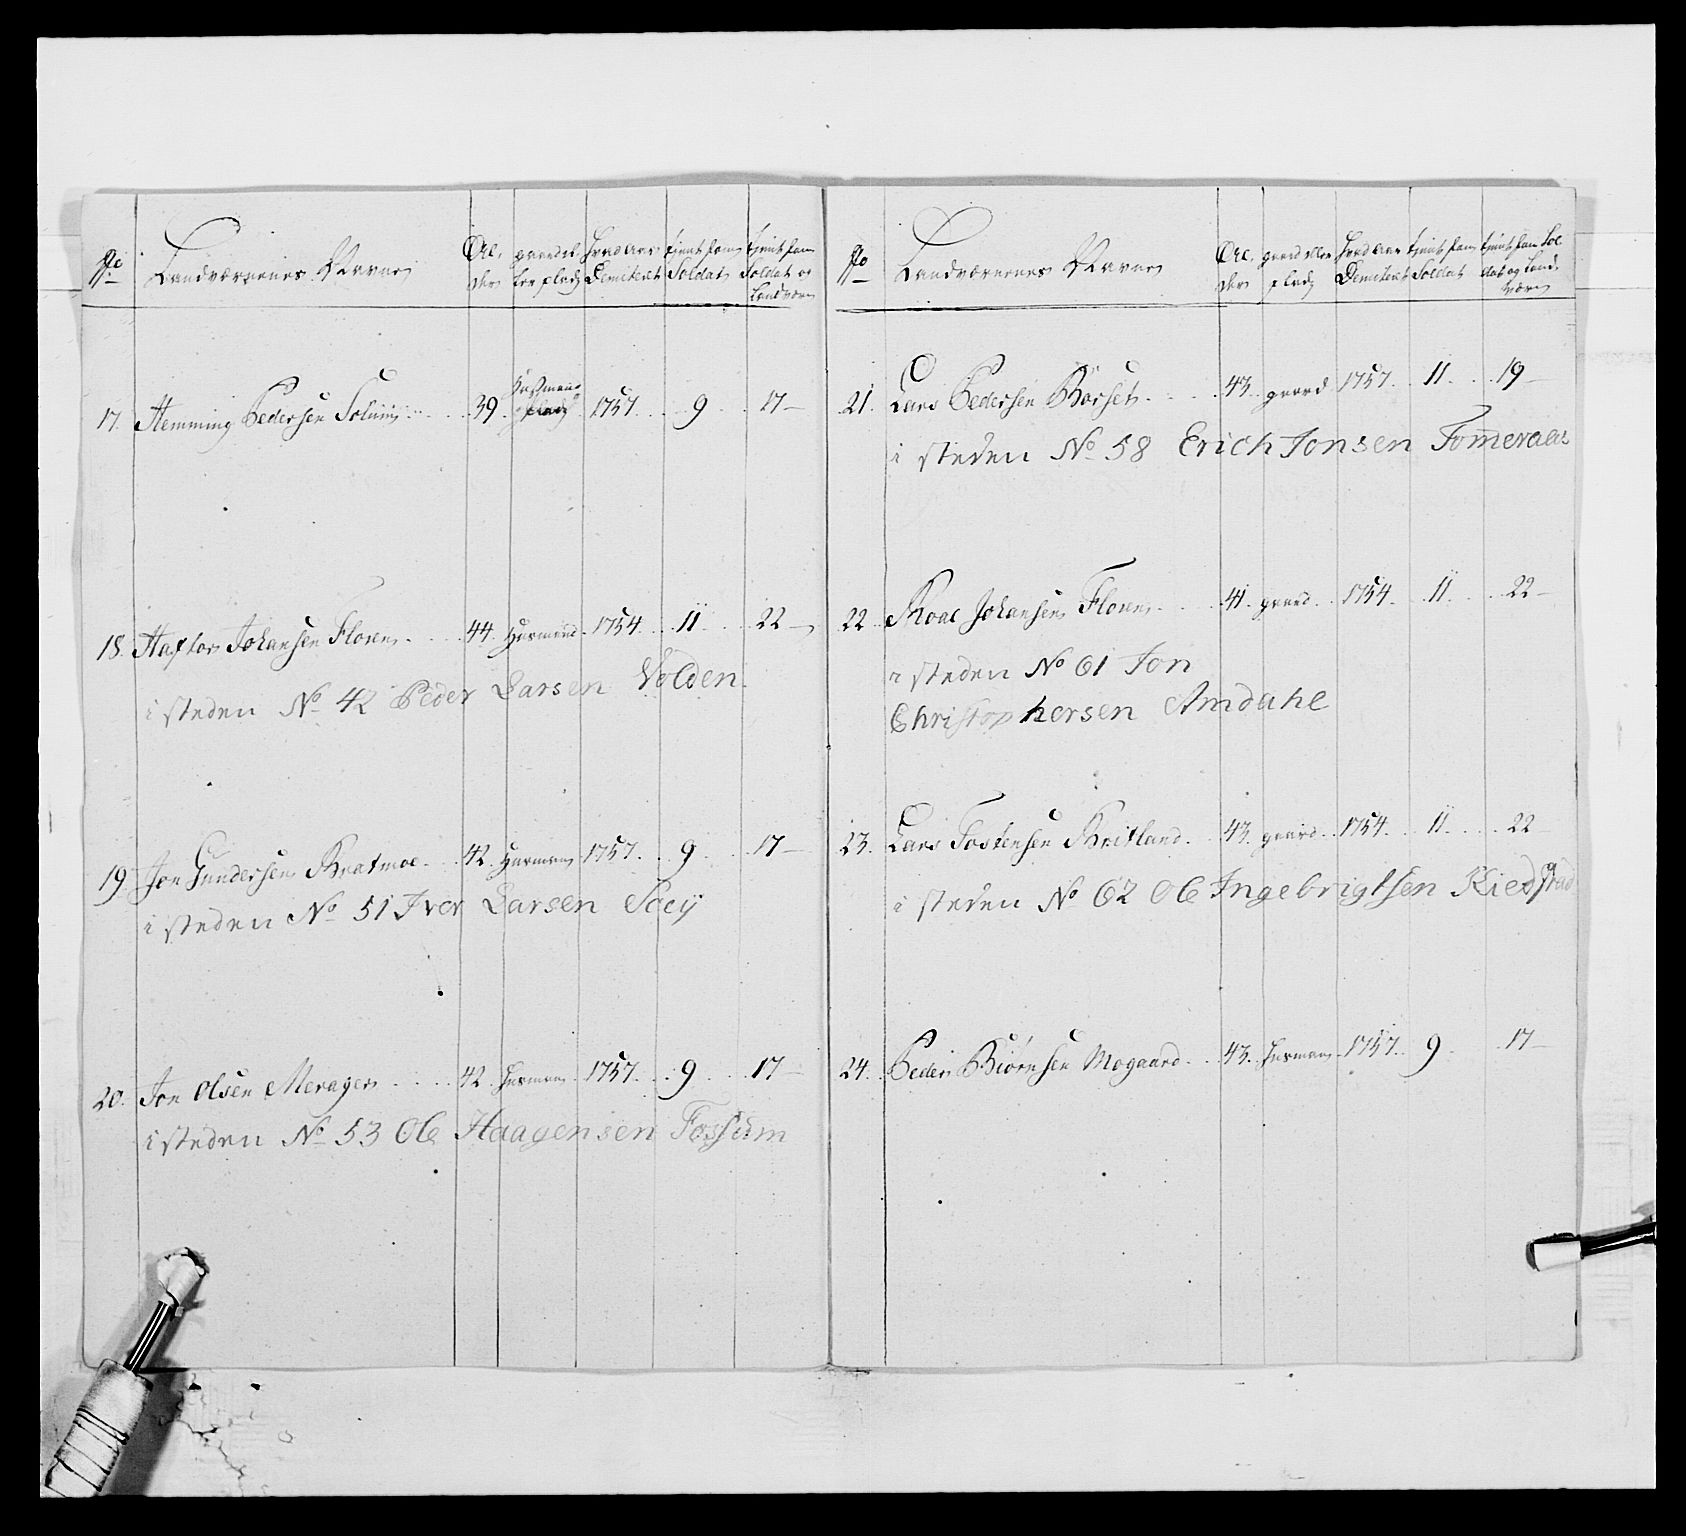 No
Landværnernes Navne
Al,
der
gaard el
ler plads
hvad Aar
Dimitert
tjent som
Soldat
tjent som
Soldat og
Landværn
17. Hemming Pedersen Solum 39. Husmands 1757. 9 17
plads
18. Haftor Johansen Floren 44. Husmand 1754. 11 22
i steden No 42 Peder Larsen Volden
19. Jon Gundersen Kratmoe 42. Husmand 1757. 9 17
i steden No 51 Iver Larsen
20. Jon Olsen Merager 42. Husmand 1757. 9 17
i steden No 53 Ole Haagensen Fossum
No
Landværnernes Navne
Al,
der
gaard eller
plads
Hvad Aar
Dimitert
tjent som
Soldat
tjent som Sol
dat og Land,
værn
21. Lars Pedersen Börset 43. gaard 1757. 11 19
i steden No 58 Erich Jonsen Tomeraas
22. Roal Johansen Floren 41. gaard 1754. 11 22
i steden No 61 Jon
Christophersen Amdahl
23. Lars Tostensen Kritland 43. gaard 1754. 11 22
i steden No 62 Ole Ingebrigtsen
24. Peder Biörnsen Mogaard 43. Husmand 1757. 9 17